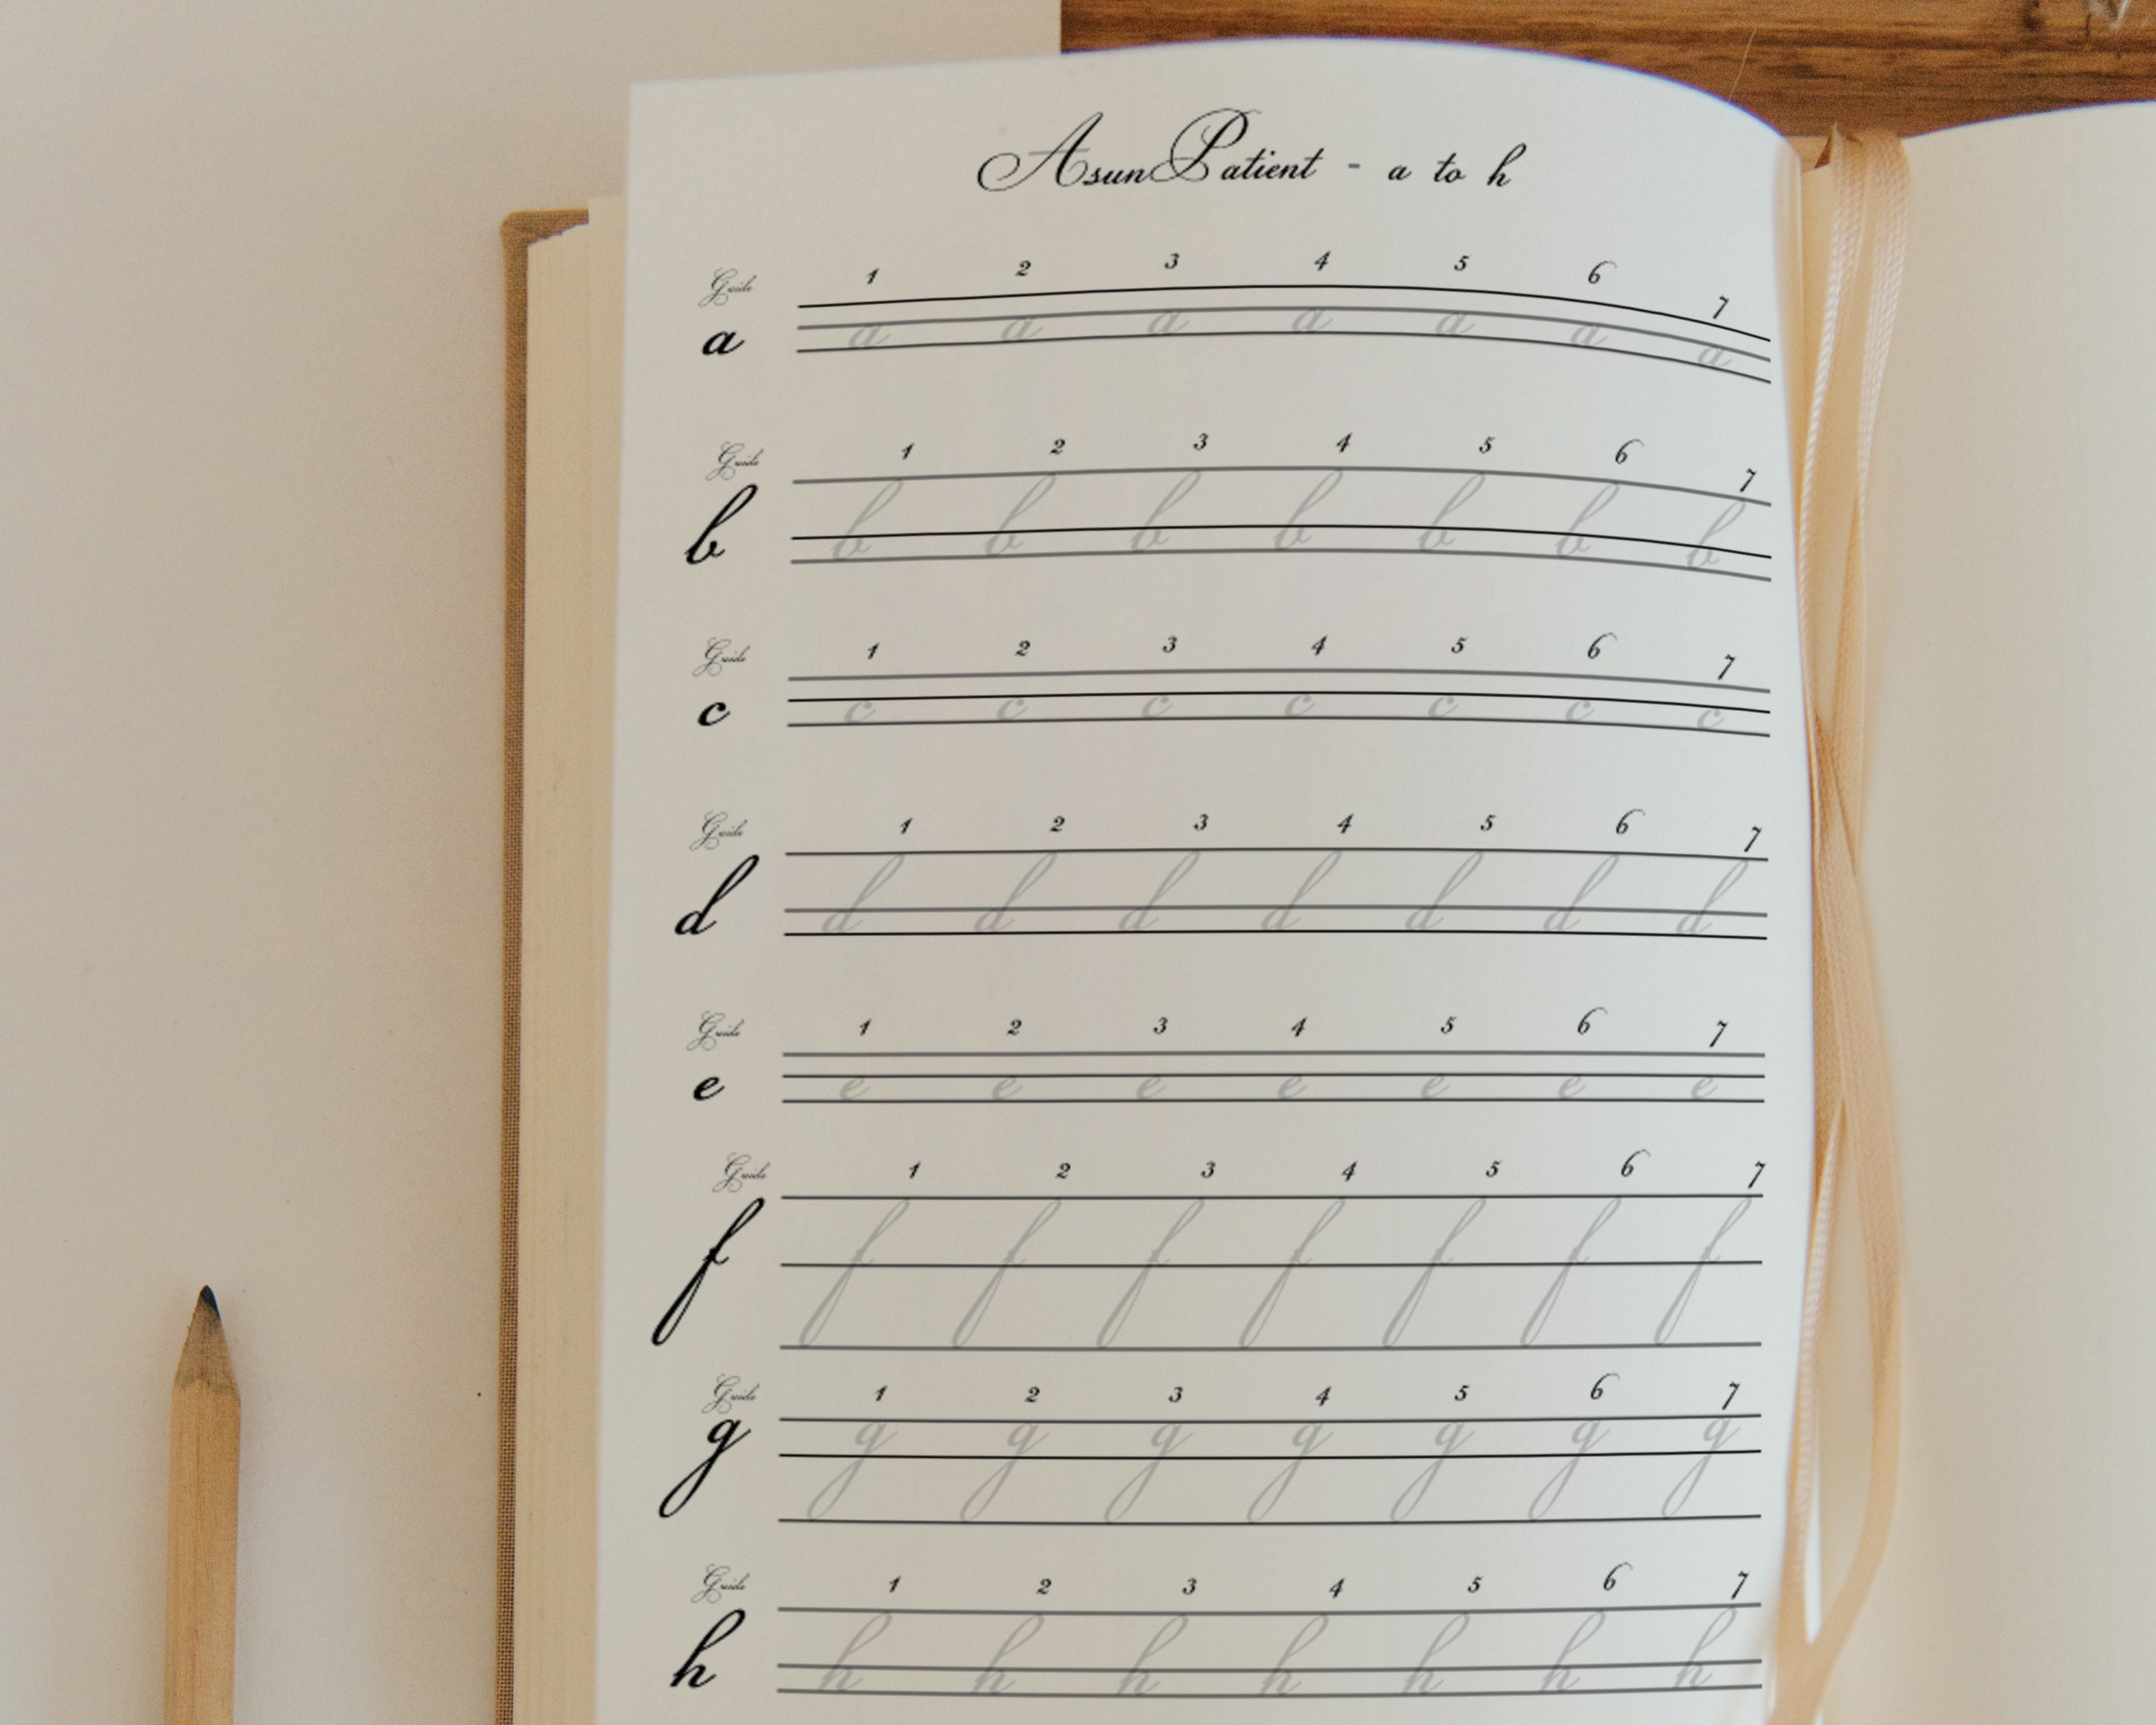 AsunPatient - a to h
Guide 1 2 3 4 5 6 7
a a a a a a a a
Guide 1 2 3 4 5 6 7
b b b b b b b b
Guide 1 2 3 4 5 6 7
c c c c c c c c
Guide 1 2 3 4 5 6 7
d d d d d d d d
Guide 1 2 3 4 5 6 7
e e e e e e e e
Guide 1 2 3 4 5 6 7
f f f f f f f f
Guide 1 2 3 4 5 6 7
g g g g g g g g
Guide 1 2 3 4 5 6 7
h h h h h h h h